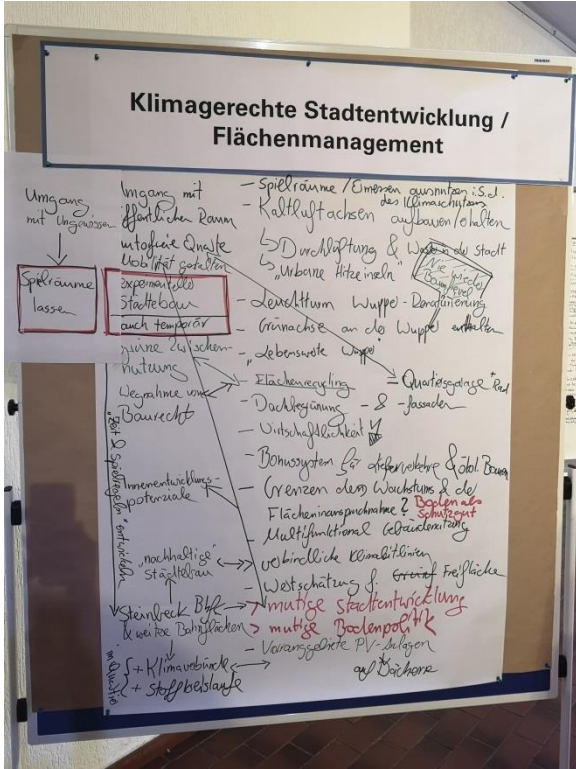 Klimagerechte Stadtentwicklung /
Flächenmanagement
Umgang
mit Ungewissen
Spielräume
lassen
Umgang mit
öffentlichen Raum
autofreie Quartiere
Mobilität gestalten
experimenteller
Städtebau
auch temporär
grüne Zwischen-
nutzung
Wegnahme von
Baurecht
"Zeit & Spielregeln" entwickeln
Innenentwicklungs-
potenziale
"nachhaltiger"
Städtebau
Steinbeck Bhf
& weitere Bahnflächen
+ Klimavebünde
+ Stoffkreisläufe
im Quartier
- Spielräume / Ermessen ausnutzen i.S.d.
des Klimaschutzes
- Kaltluftachsen aufbauen/erhalten
↳ Durchlüftung & Wasser in der Stadt
↳ "Urbane Hitzeinseln"
Nie wieder
- Leuchtturm Wupper-Renaturierung
- Grünachse an der Wupper erhalten
- "Lebenswerte Wupper"
- Flächenrecycling
= Quartiersgarage + Rad
- Dachbegrünung - & -fassaden
- Wirtschaftlichkeit
- Bonussystem für Lieferverkehre & ökol. Bauen
- Grenzen dem Wachstums & der
Flächeninanspruchnahme ? Boden als
Schutzgut
- Multifunktional Gebäudenutzung
- verbindliche Klimaleitlinien
- Wertschätzung f. Freifläche
> mutige Stadtentwicklung
> mutige Bodenpolitik
- Vorranggebiete PV-Anlagen
auf Dächern